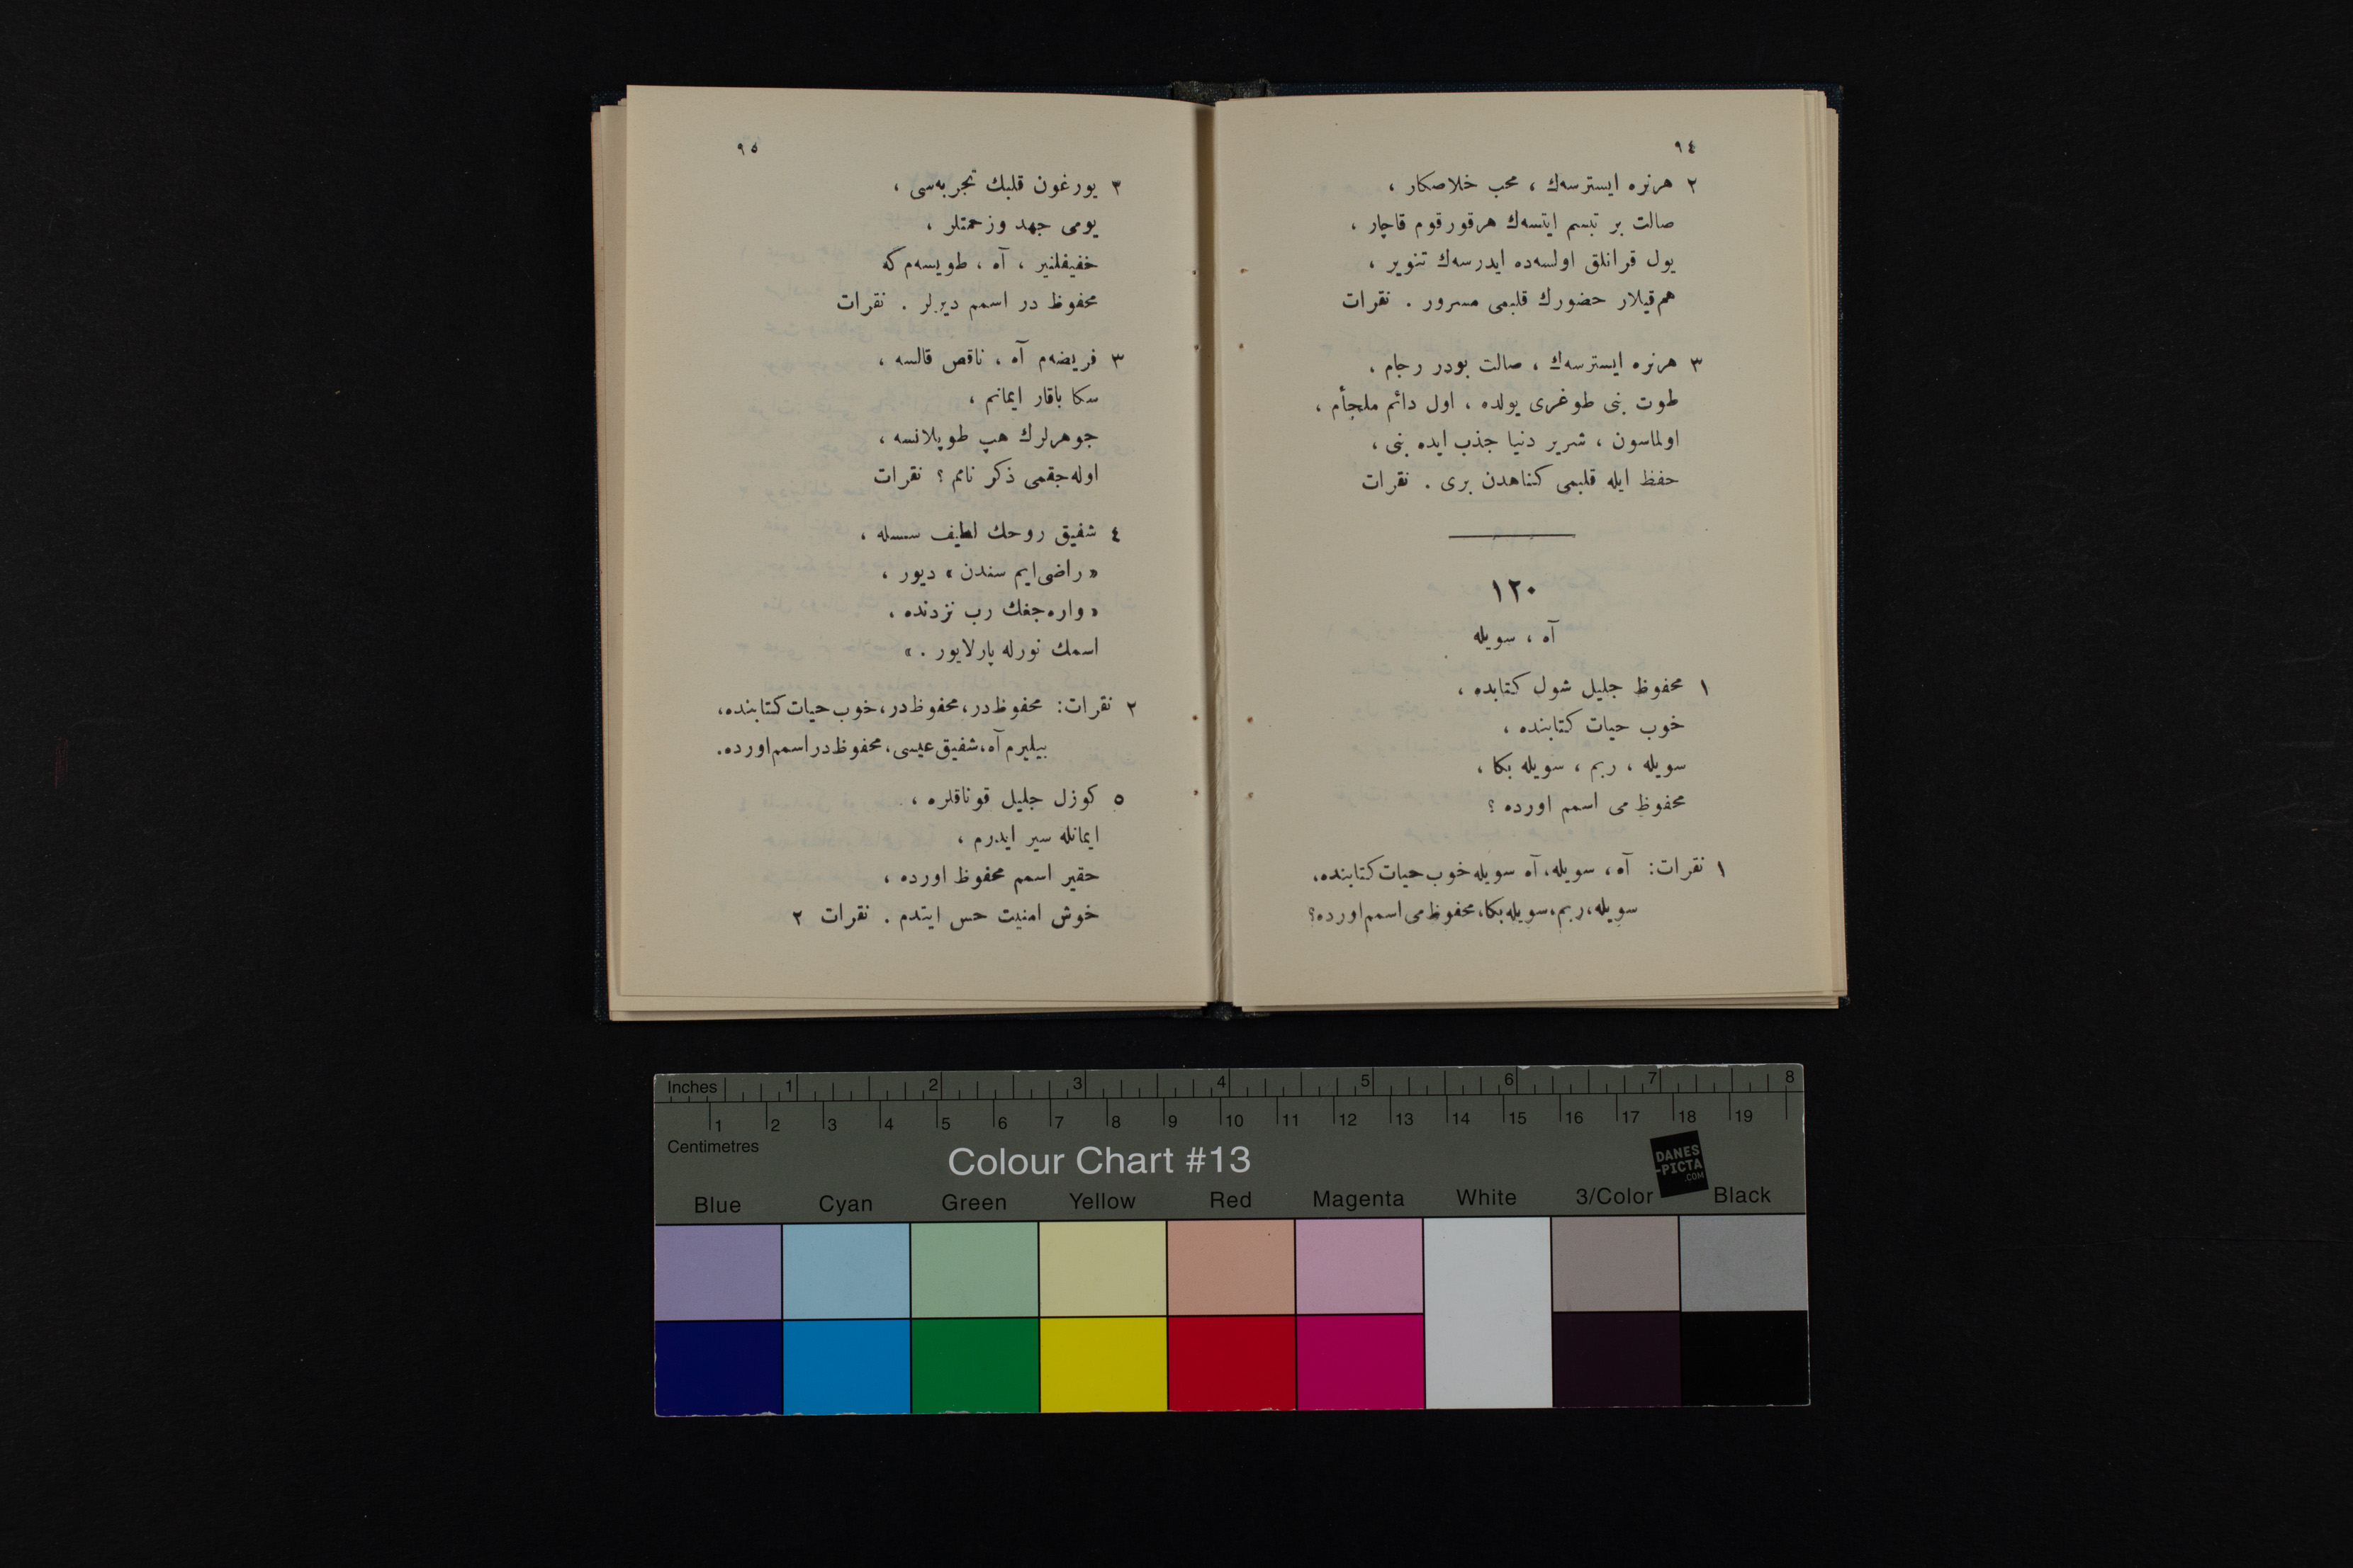 ٩٤
٢ هرنره ایسترسه‌ك ، محب خلاصکار ،
صالت بر تبسم ایتسه‌ك هرقورقوم قاچار ،
یول قرانلق اولسه‌ده ایدرسه‌ك تنویر ،
هم‌قیلار حضورك قلبمی مسرور . نقرات
٣ هرنره ایسترسه‌ك ، صالت بودر رجام ،
طوت بنی طوغری یولده ، اول دائم ملجأم ،
اولماسون ، شریر دنیا جذب ایده بنی ،
حفظ ایله قلبمی کناهدن بری . نقرات
١٢٠
آه ، سویله
١ محفوظ جلیل شول کتابده ،
خوب حیات کتابنده ،
سویله ، ربم ، سویله بکا ،
محفوظ می اسمم اورده ؟
١ نقرات: آه ، سویله، آه سویله خوب حیات کتابنده،
سویله، ربم، سویله بکا، محفوظ می اسمم اورده؟
٩٥
٣ یورغون قلبك تجربه‌سی ،
یومی جهد وزحمتلر ،
خفیفلنیر ، آه ، طویسه‌م که
محفوظ در اسمم دیرلر . نقرات
٣ فریضه‌م آه ، ناقص قالسه ،
سکا باقار ایمانم ،
جوهرلرك هپ طوپلانسه ،
اوله‌جقمی ذکر نامم ؟ نقرات
٤ شفیق روحك لطیف سسله ،
« راضی‌ایم سندن » دیور ،
« واره‌جغك رب نزدنده ،
اسمك نورله پارلایور . »
٢ نقرات: محفوظ در، محفوظ در، خوب حیات کتابنده،
بیلیرم آه، شفیق عیسی، محفوظ در اسمم اورده.
٥ کوزل جلیل قوناقلره ،
ایمانله سیر ایدرم ،
حقیر اسمم محفوظ اورده ،
خوش امنیت حس ایتدم . نقرات ٢
Inches 1 2 3 4 5 6 7 8
1 2 3 4 5 6 7 8 9 10 11 12 13 14 15 16 17 18 19
Centimetres
Colour Chart #13
DANES
-PICTA
.COM
Blue Cyan Green Yellow Red Magenta White 3/Color Black